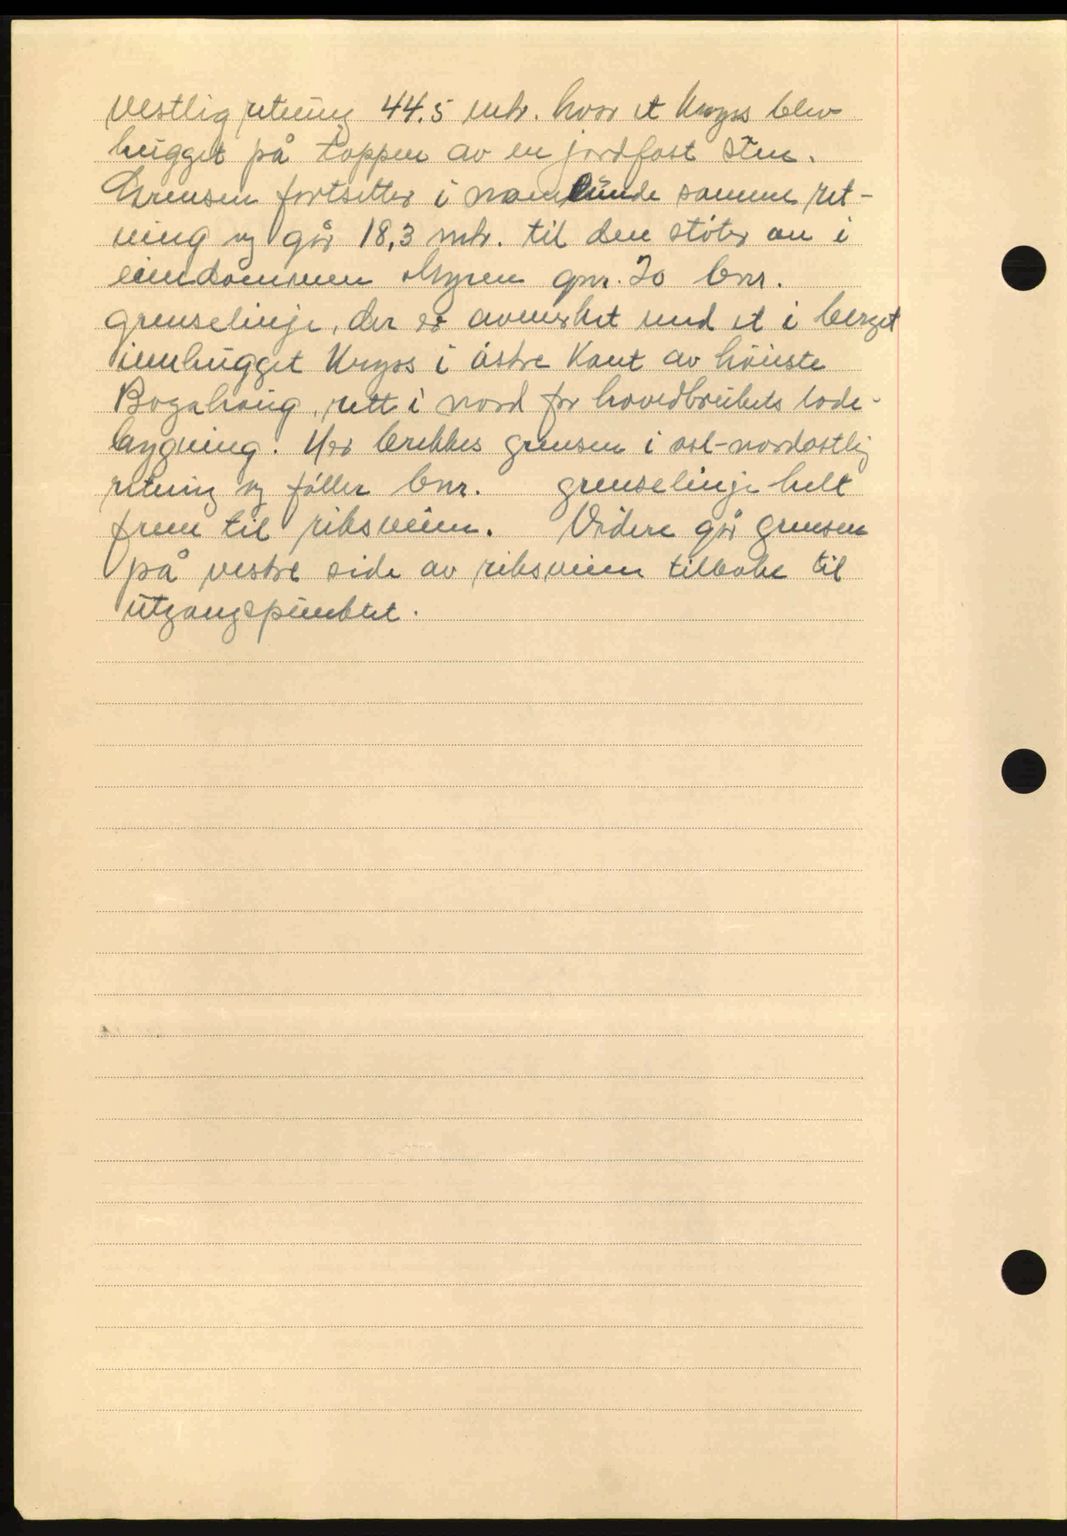 vestlig retning 44.5 mtr. hvor et kryss blev
hugget på toppen av en jordfast sten.
Grensen fortsetter i noenlunde samme ret-
ning og går 18,3 mtr. til den støter an i
eiendommen Myren gnr. 20 bnr.
grenselinje, der er avmerket med et i berget
innhugget kryss i østre kant av høieste
Bogahaug, rett i nord for hovedbrukets lode-
bygning. Her brekkes grensen i øst-nordøstlig
retning og føller bnr. grenselinje helt
frem til riksveien. Videre går grensen
på vestre side av riksveien tilbake til
utgangspunktet.